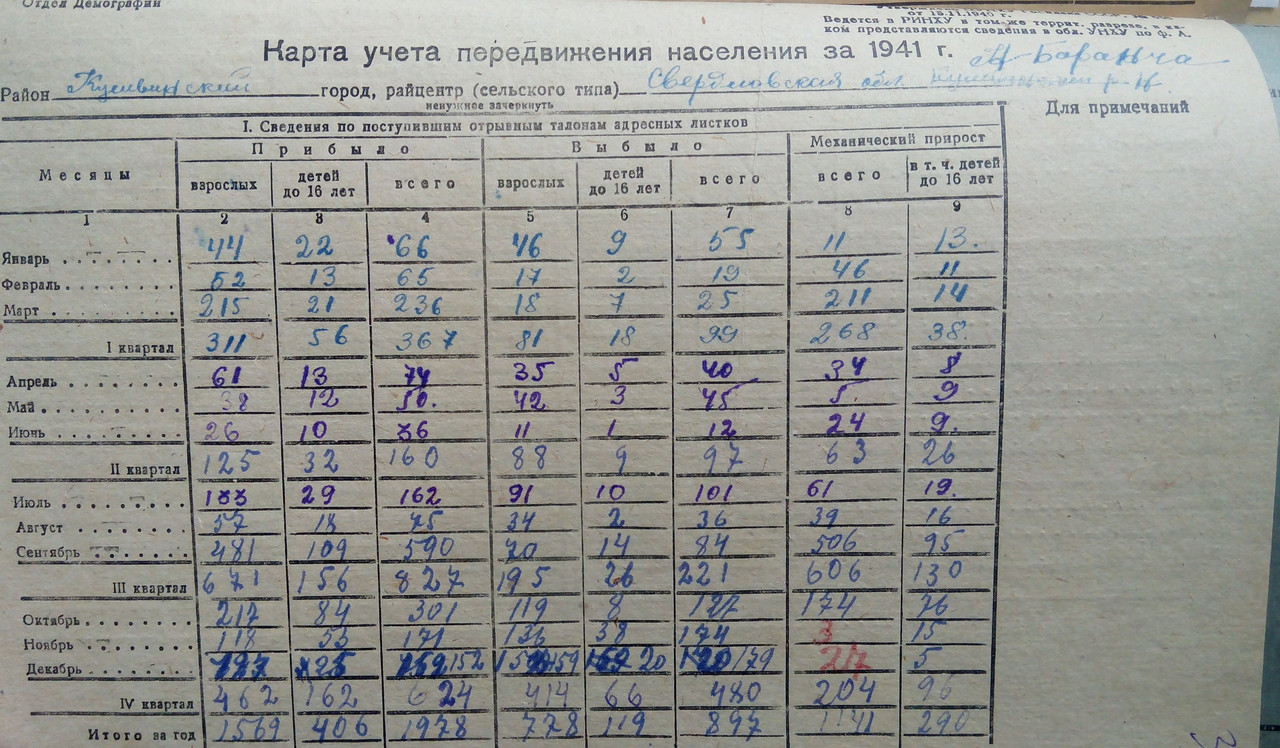 Отдел Демографии
от 15.11.1940 г.
Ведется в РИНХУ в том же террит. разрезе, в ка-
ком представляются сведения в обл. УНХУ по ф. А.
Карта учета передвижения населения за 1941 г. Баранча
Район Кушвинский город, райцентр (сельского типа) Свердловская обл
ненужное зачеркнуть
Для примечаний
I. Сведения по поступившим отрывным талонам адресных листков
Месяцы Прибыло Выбыло Механический прирост
взрослых детей до 16 лет всего взрослых детей до 16 лет всего всего в т. ч. детей до 16 лет
1 2 3 4 5 6 7 8 9
Январь 44 22 66 46 9 55 11 13.
Февраль 52 13 65 17 2 19 46 11
Март 215 21 236 18 7 25 211 14
I квартал 311 56 367 81 18 99 268 38.
Апрель 61 13 74 35 5 40 34 8
Май 38 12 50. 42 3 45 5. 9
Июнь 26 10 36 11 1 12 24 9.
II квартал 125 32 160 88 9 97 63 26
Июль 133 29 162 91 10 101 61 19.
Август 57 18 75 34 2 36 39 16
Сентябрь 481 109 590 70 14 84 506 95
III квартал 671 156 827 195 26 221 606 130
Октябрь 217 84 301 119 8 127 174 76
Ноябрь 118 53 171 136 38 174 3 15
Декабрь 152 159 20 179 27 5
IV квартал 462 162 624 414 66 480 204 96
Итого за год 1569 406 1978 778 119 897 1141 290